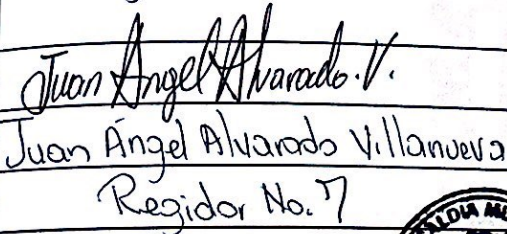 Juan Angel Alvarado. V.
Juan Ángel Alvarado Villanueva
Regidor No. 7